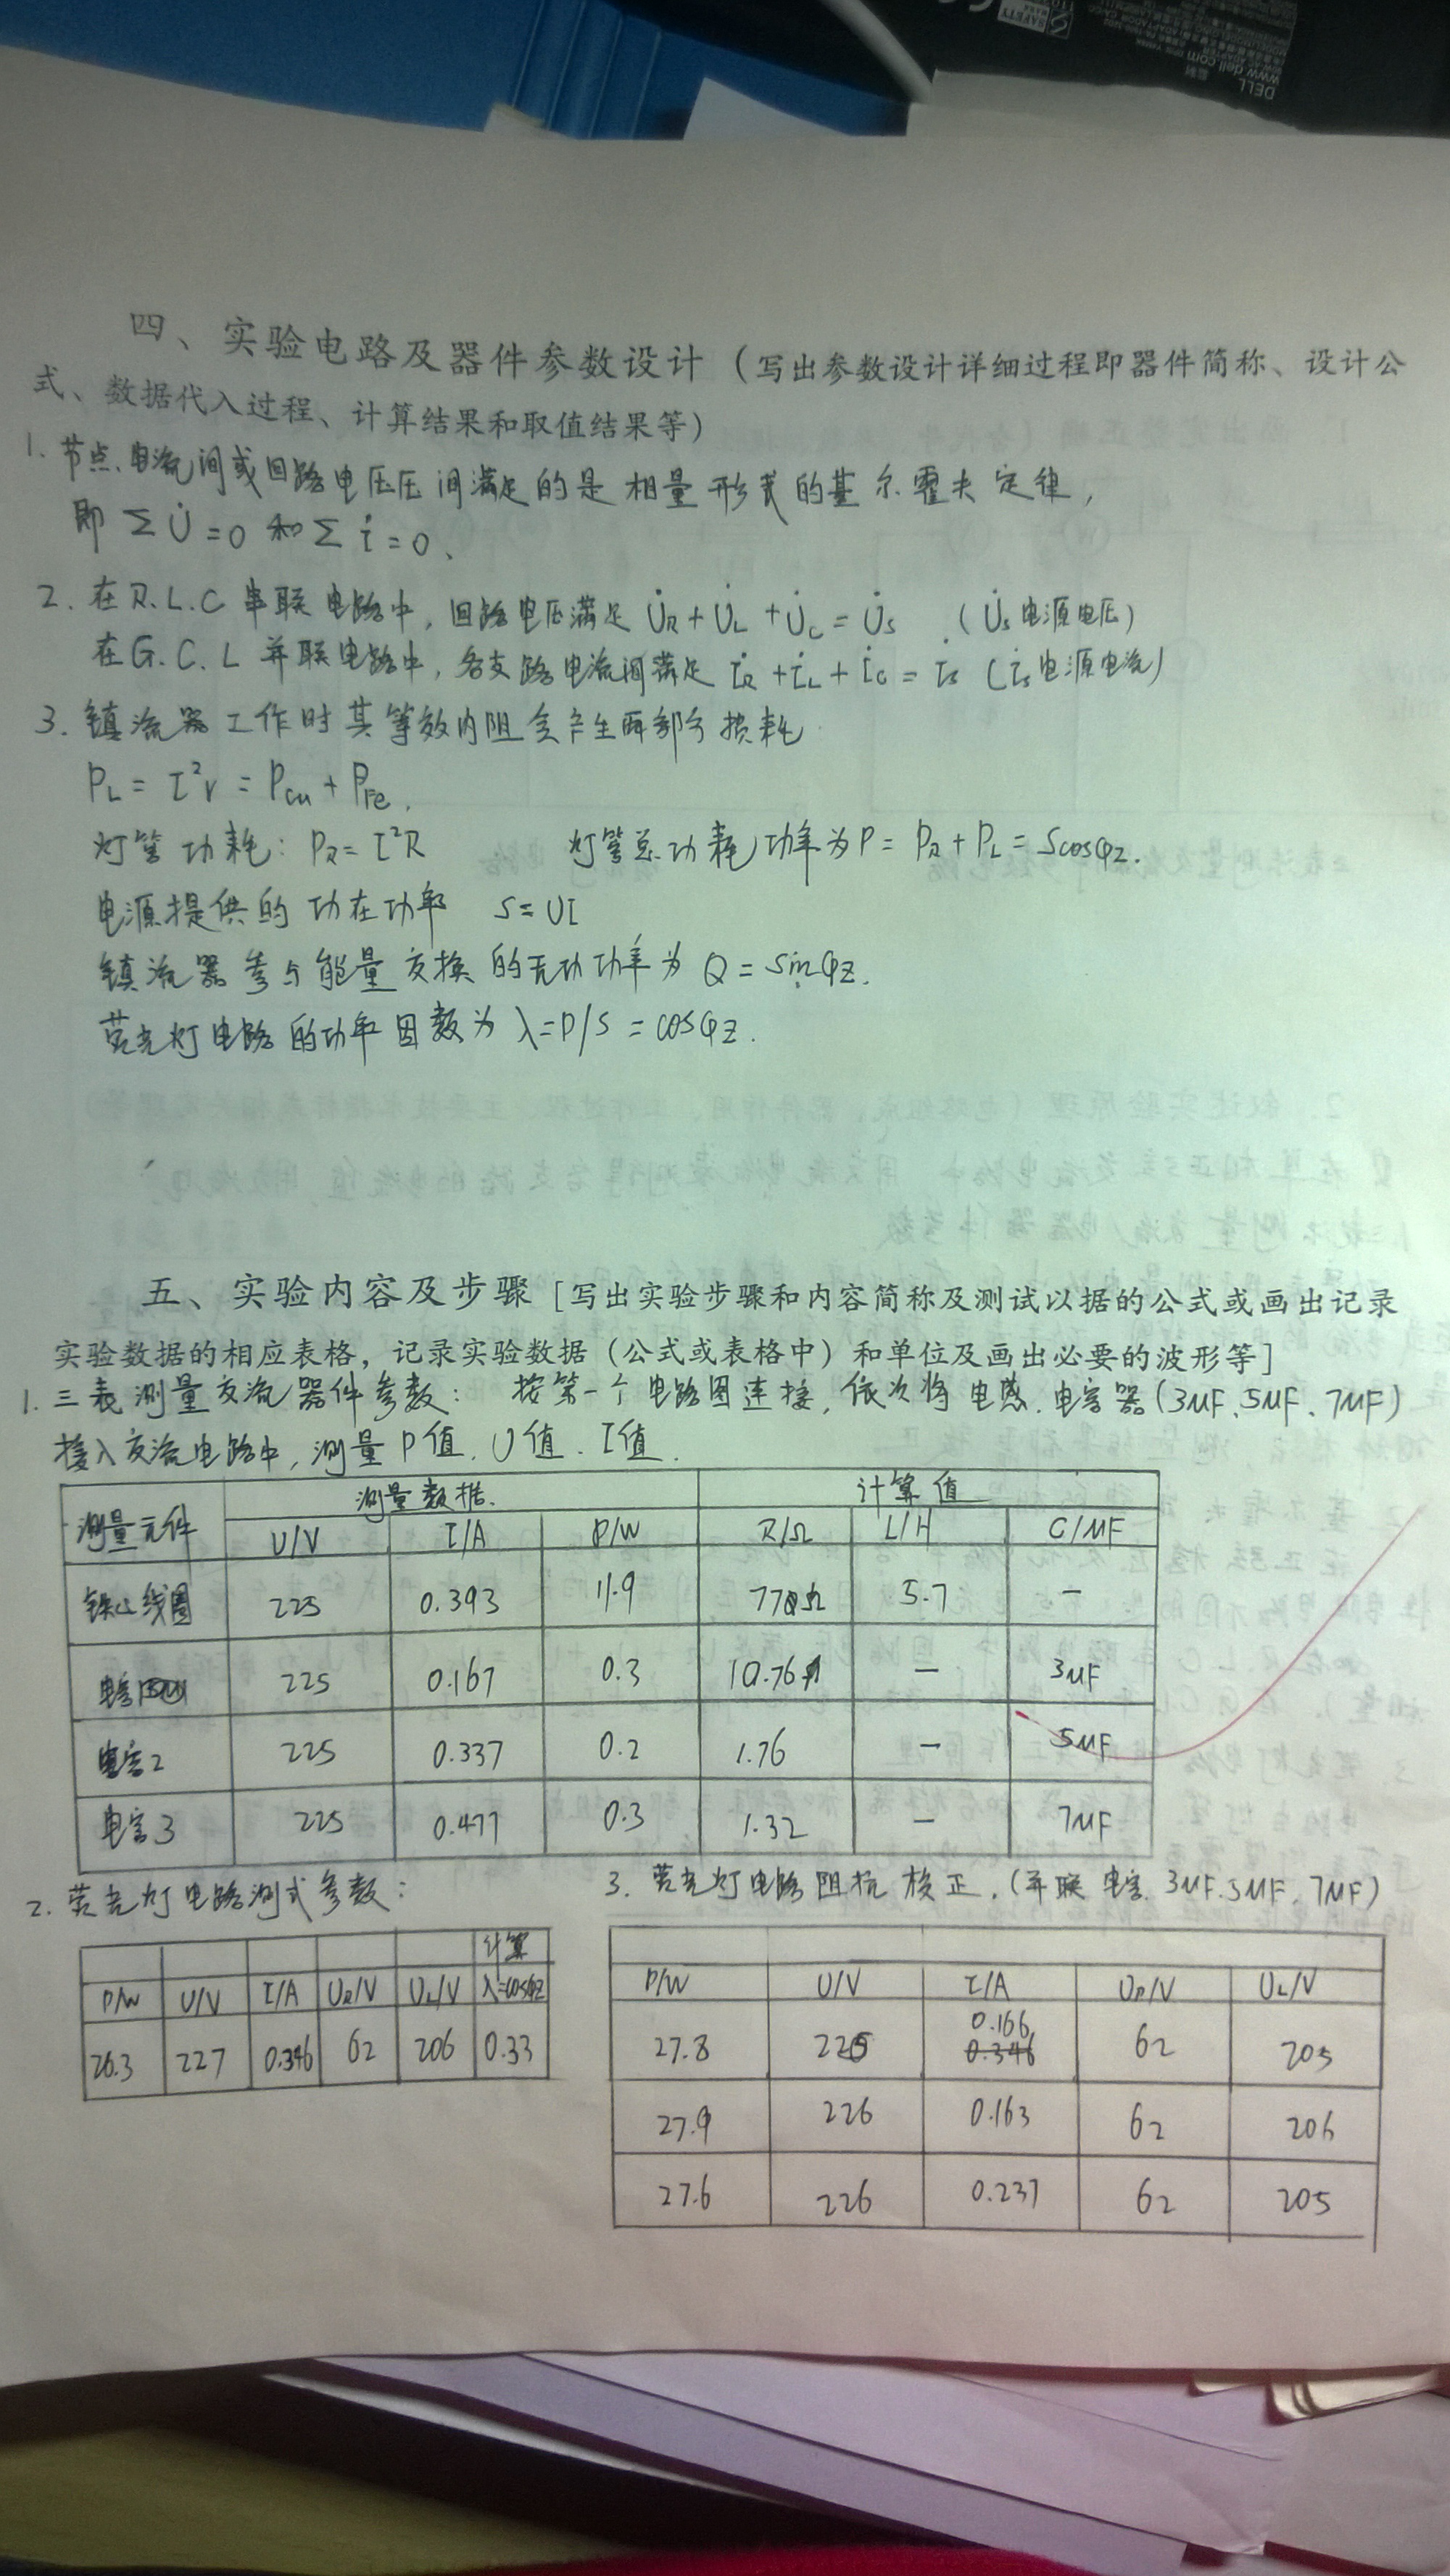 DELL
www.dell.com
四、实验电路及器件参数设计（写出参数设计详细过程即器件简称、设计公
式、数据代入过程、计算结果和取值结果等）
1. 节点电流间或回路电压压间满足的是相量形式的基尔霍夫定律，
即 ΣU̇=0 和 Σİ=0、
2. 在R.L.C 串联电路中，回路电压满足 U̇R+U̇L+U̇C=U̇S．（U̇S电源电压）
在G.C.L 并联电路中，各支路电流间满足 İR+İL+İC=İS（İS电源电流）
3. 镇流器工作时其等效内阻会产生两部分损耗
PL=I²r=Pcu+PFe．
灯管功耗：PR=I²R 灯管总功耗功率为P=PR+PL=Scosφz．
电源提供的功在功率 S=UI
镇流器参与能量交换的无功功率为 Q=sinφz．
荧光灯电路的功率因数为 λ=P/S=cosφz．
五、实验内容及步骤［写出实验步骤和内容简称及测试以据的公式或画出记录
实验数据的相应表格，记录实验数据（公式或表格中）和单位及画出必要的波形等］
1. 三表测量交流器件参数：按第一个电路图连接，依次将电感．电容器(3μF、5μF、7μF)
接入交流电路中，测量P值．U值．I值．
测量元件 测量数据． 计算值
U/V I/A P/W R/Ω L/H C/μF
铁心线圈 225 0.393 11.9 77Ω 5.7 —
电容1 225 0.167 0.3 10.76 — 3μF
电容2 225 0.337 0.2 1.76 — 5μF
电容3 225 0.477 0.3 1.32 — 7μF
2. 荧光灯电路测式参数：
计算
P/W U/V I/A UR/V UL/V λ=cosφz
26.3 227 0.346 62 206 0.33
3. 荧光灯电路阻抗校正．(并联电容 3μF．5μF．7μF)
P/W U/V I/A UR/V UL/V
0.166
27.8 225 0.346 62 205
27.9 226 0.163 62 206
27.6 226 0.237 62 205